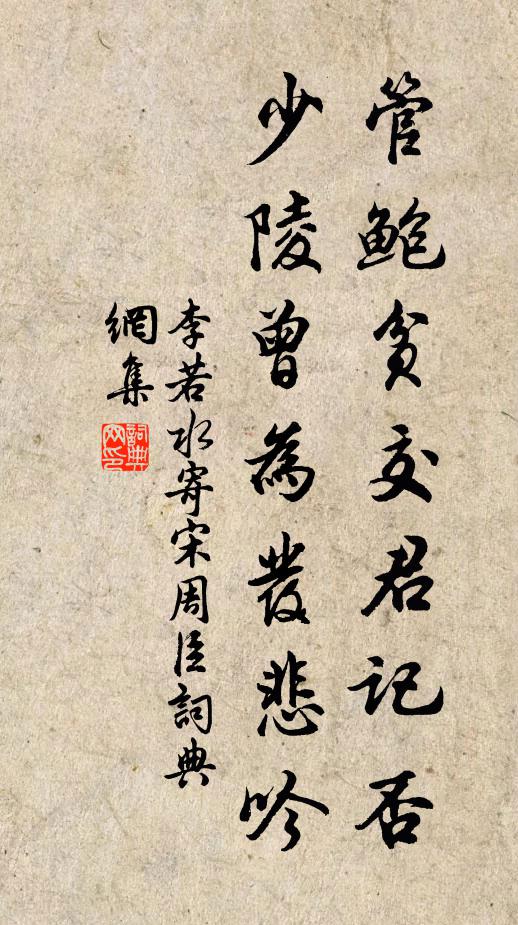 管鮑貧交君記否
少陵曾為發悲吟
李若水寄宋周臣詞典
網集
詞典網印